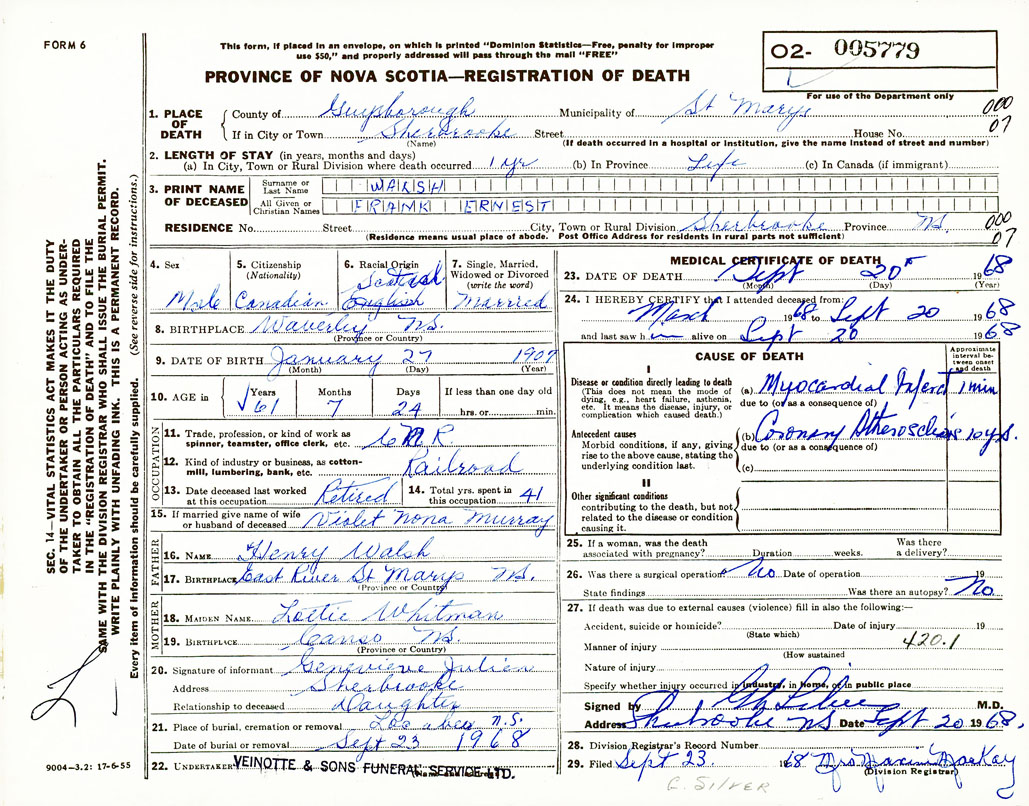 FORM 6
This form, if placed in an envelope, on which is printed "Dominion Statistics—Free, penalty for improper
use $50," and properly addressed will pass through the mail "FREE"
PROVINCE OF NOVA SCOTIA—REGISTRATION OF DEATH
02- 005779
For use of the Department only
000
07
1. PLACE OF DEATH
County of Guysborough Municipality of St Marys
If in City or Town Sherbrooke Street House No.
(Name) (If death occurred in a hospital or institution, give the name instead of street and number)
2. LENGTH OF STAY (in years, months and days)
(a) In City, Town or Rural Division where death occurred 1 yr (b) In Province Life (c) In Canada (if immigrant)
3. PRINT NAME OF DECEASED
Surname or Last Name WALSH
All Given or Christian Names FRANK ERNEST
RESIDENCE No. Street City, Town or Rural Division Sherbrooke Province NS.
(Residence means usual place of abode. Post Office Address for residents in rural parts not sufficient)
000
07
4. Sex
Male
5. Citizenship
(Nationality)
Canadian
6. Racial Origin
Scotish
English
7. Single, Married,
Widowed or Divorced
(write the word)
Married
8. BIRTHPLACE Waverley NS.
(Province or Country)
9. DATE OF BIRTH January 27 1907
(Month) (Day) (Year)
10. AGE in
Years Months Days If less than one day old
61 7 24 hrs. or min.
OCCUPATION
11. Trade, profession, or kind of work as
spinner, teamster, office clerk, etc. C N R.
12. Kind of industry or business, as cotton-
mill, lumbering, bank, etc. Railroad
13. Date deceased last worked
at this occupation Retired
14. Total yrs. spent in
this occupation 41
15. If married give name of wife
or husband of deceased Violet Nona Murray
FATHER
16. NAME Henry Walsh
17. BIRTHPLACE East River St Marys NS.
(Province or Country)
MOTHER
18. MAIDEN NAME Lottie Whitman
19. BIRTHPLACE Canso NS
(Province or Country)
20. Signature of informant Genevieve Julien
Address Sherbrooke
Relationship to deceased Daughter
21. Place of burial, cremation or removal Lochaber N.S.
Date of burial or removal Sept 23 1968
22. UNDERTAKER VEINOTTE & SONS FUNERAL SERVICE LTD.
MEDICAL CERTIFICATE OF DEATH
23. DATE OF DEATH Sept 20 1968
(Month) (Day) (Year)
24. I HEREBY CERTIFY that I attended deceased from:
March 1968 to Sept 20 1968
and last saw h im alive on Sept 20 1968
CAUSE OF DEATH
Approximate
interval be-
tween onset
and death
I
Disease or condition directly leading to death
(This does not mean the mode of
dying, e.g., heart failure, asthenia,
etc. It means the disease, injury, or
complication which caused death.)
(a) Myocardial Infarct 1 min
due to (or as a consequence of)
Antecedent causes
Morbid conditions, if any, giving
rise to the above cause, stating the
underlying condition last.
(b) Coronary Atherosclerosis 10 yrs.
due to (or as a consequence of)
(c)
II
Other significant conditions
contributing to the death, but not
related to the disease or condition
causing it.
25. If a woman, was the death
associated with pregnancy? Duration weeks. Was there
a delivery?
26. Was there a surgical operation? No Date of operation 19
State findings Was there an autopsy? No
27. If death was due to external causes (violence) fill in also the following:—
Accident, suicide or homicide? Date of injury 19
(State which)
Manner of injury 420.1
(How sustained
Nature of injury
Specify whether injury occurred in industry, in home, or in public place
Signed by M.D.
Address Sherbrooke NS Date Sept 20 1968.
28. Division Registrar's Record Number
29. Filed Sept 23 1968 Mrs Maxine MacKay
(Division Registrar)
G. SILVER
SEC. 14—VITAL STATISTICS ACT MAKES IT THE DUTY
OF THE UNDERTAKER OR PERSON ACTING AS UNDER-
TAKER TO OBTAIN ALL THE PARTICULARS REQUIRED
IN THE "REGISTRATION OF DEATH" AND TO FILE THE
SAME WITH THE DIVISION REGISTRAR WHO SHALL ISSUE THE BURIAL PERMIT.
WRITE PLAINLY WITH UNFADING INK. THIS IS A PERMANENT RECORD.
Every item of information should be carefully supplied. (See reverse side for instructions.)
9004-3.2: 17-6-55